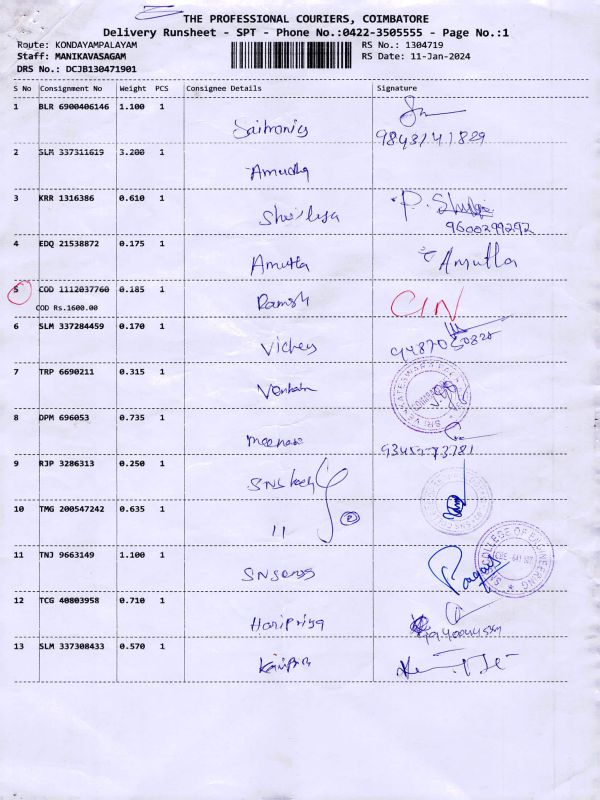 THE PROFESSIONAL COURIERS, COIMBATORE
Delivery Runsheet - SPT - Phone No.:0422-3505555 - Page No.:1
Route: KONDAYAMPALAYAM RS No.: 1304719
Staff: MANIKAVASAGAM RS Date: 11-Jan-2024
DRS No.: DCJB130471901
S No Consignment No Weight PCS Consignee Details Signature
1 BLR 6900406146 1.100 1
2 SLM 337311619 3.200 1 Amudha
3 KRR 1316386 0.610 1
9600299292
4 EDQ 21538872 0.175 1 Amutha Amutha
5 COD 1112037760 0.185 1 Ramesh
COD Rs.1600.00
6 SLM 337284459 0.170 1 Vickey
7 TRP 6690211 0.315 1 Venkat
8 DPM 696053 0.735 1 meena
9 RJP 3286313 0.250 1 SNS
10 TMG 200547242 0.635 1 11 2
11 TNJ 9663149 1.100 1
COLLEGE OF ENGINEERING
12 TCG 40803958 0.710 1 Haripriya
13 SLM 337308433 0.570 1